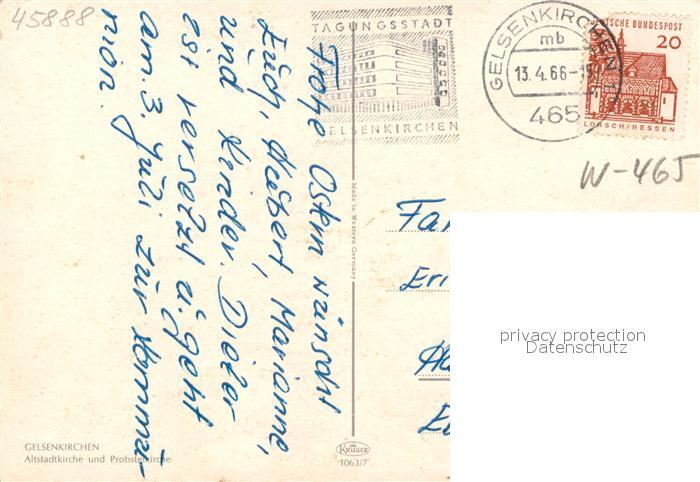 45888
TAGUNGSSTADT
GELSENKIRCHEN
GELSENKIRCHEN
mb
13.4.66-1
465
DEUTSCHE BUNDESPOST
20
LORSCH/HESSEN
W-465
Frohe Ostern wünscht
Euch, Hubert, Marianne,
und Kinder. Dieter
ist versetzt u. geht
am 3. Juli zur Kommu-
nion.
Made in Western Germany
Fa
Eri
privacy protection
Datenschutz
GELSENKIRCHEN
Altstadtkirche und Probsteikirche
KRÜGER
1063/7